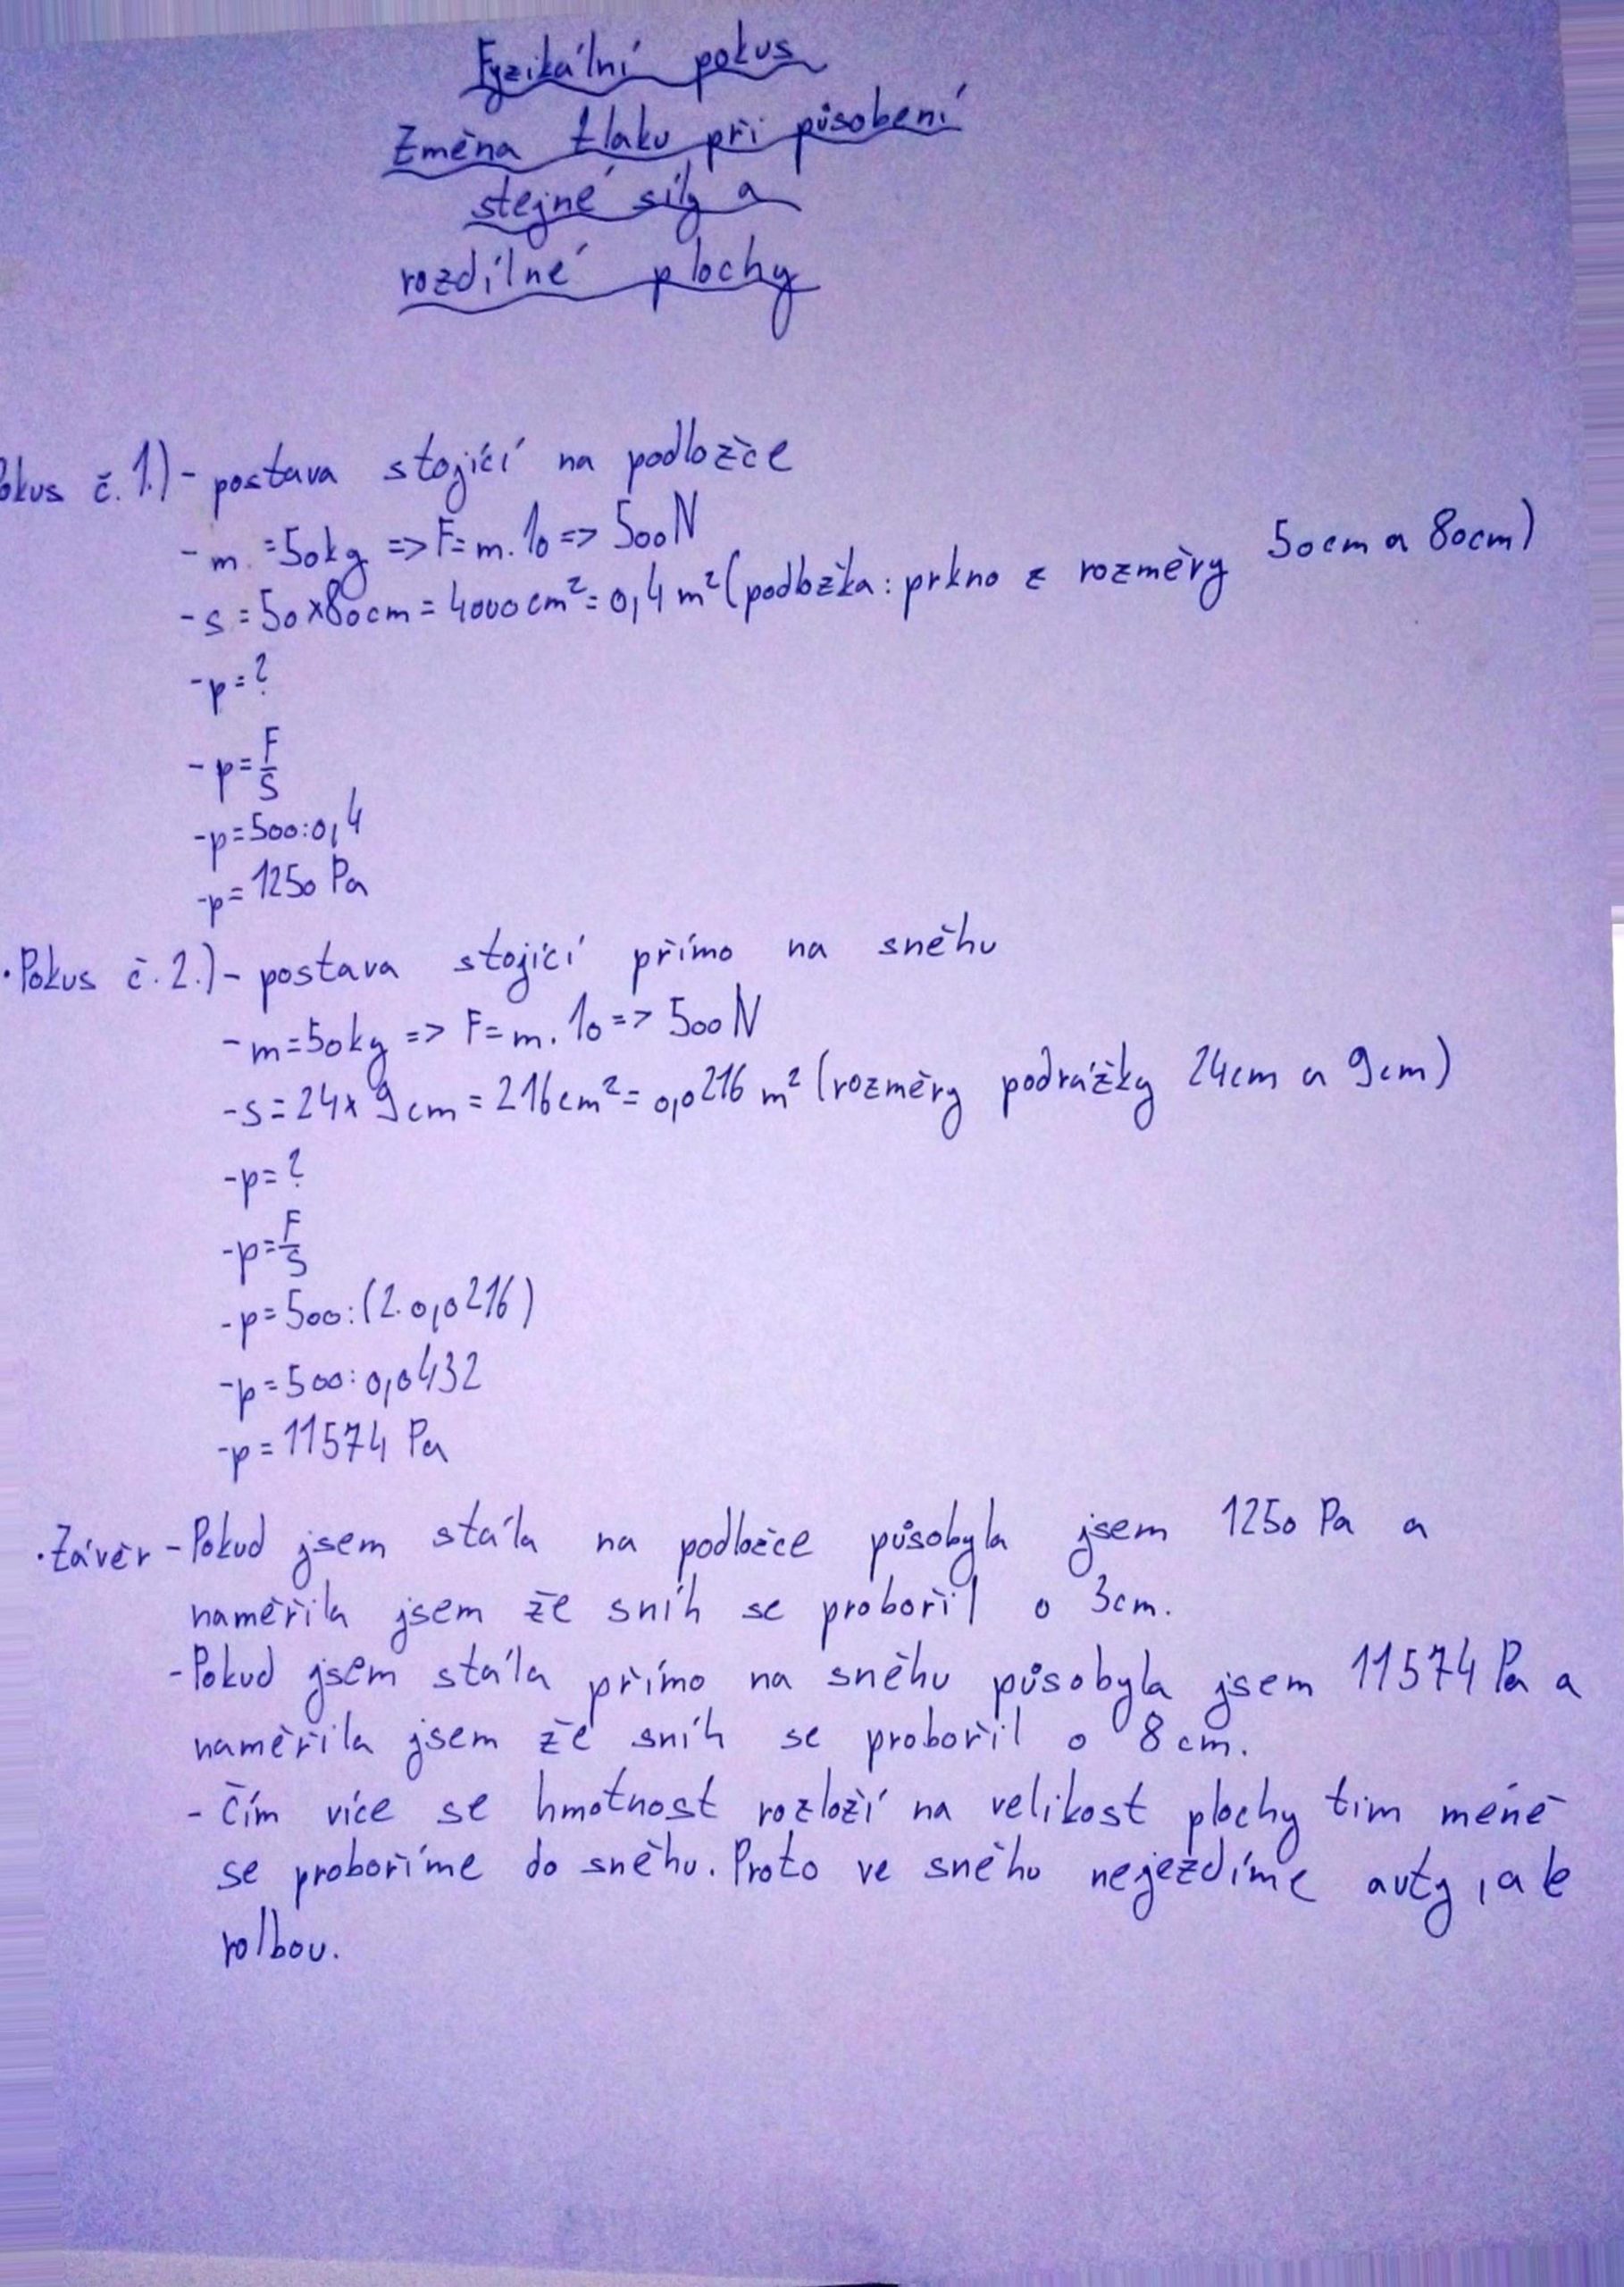 Fyzikální pokus
Změna tlaku při působení
stejné síly a
rozdílné plochy
Pokus č. 1.) - postava stojící na podložce
- m = 50kg => F = m. 10 => 500N
- s = 50x80cm = 4000cm² = 0,4 m² (podložka: prkno z rozměry 50cm a 80cm)
- p = ?
- p = F/S
- p = 500:0,4
- p = 1250 Pa
• Pokus č. 2.) - postava stojící přímo na sněhu
- m = 50kg => F = m. 10 => 500N
- s = 24x 9cm = 216cm² = 0,0216 m² (rozměry podrážky 24cm a 9cm)
- p = ?
- p = F/S
- p = 500:(2.0,0216)
- p = 500:0,0432
- p = 11574 Pa
• Závěr - Pokud jsem stála na podložce působyla jsem 1250 Pa a
naměřila jsem že sníh se probořil o 3cm.
- Pokud jsem stála přímo na sněhu působyla jsem 11574 Pa a
naměřila jsem že sníh se probořil o 8cm.
- Čím více se hmotnost rozloží na velikost plochy tím méně
se proboříme do sněhu. Proto ve sněhu nejezdíme auty, ale
rolbou.